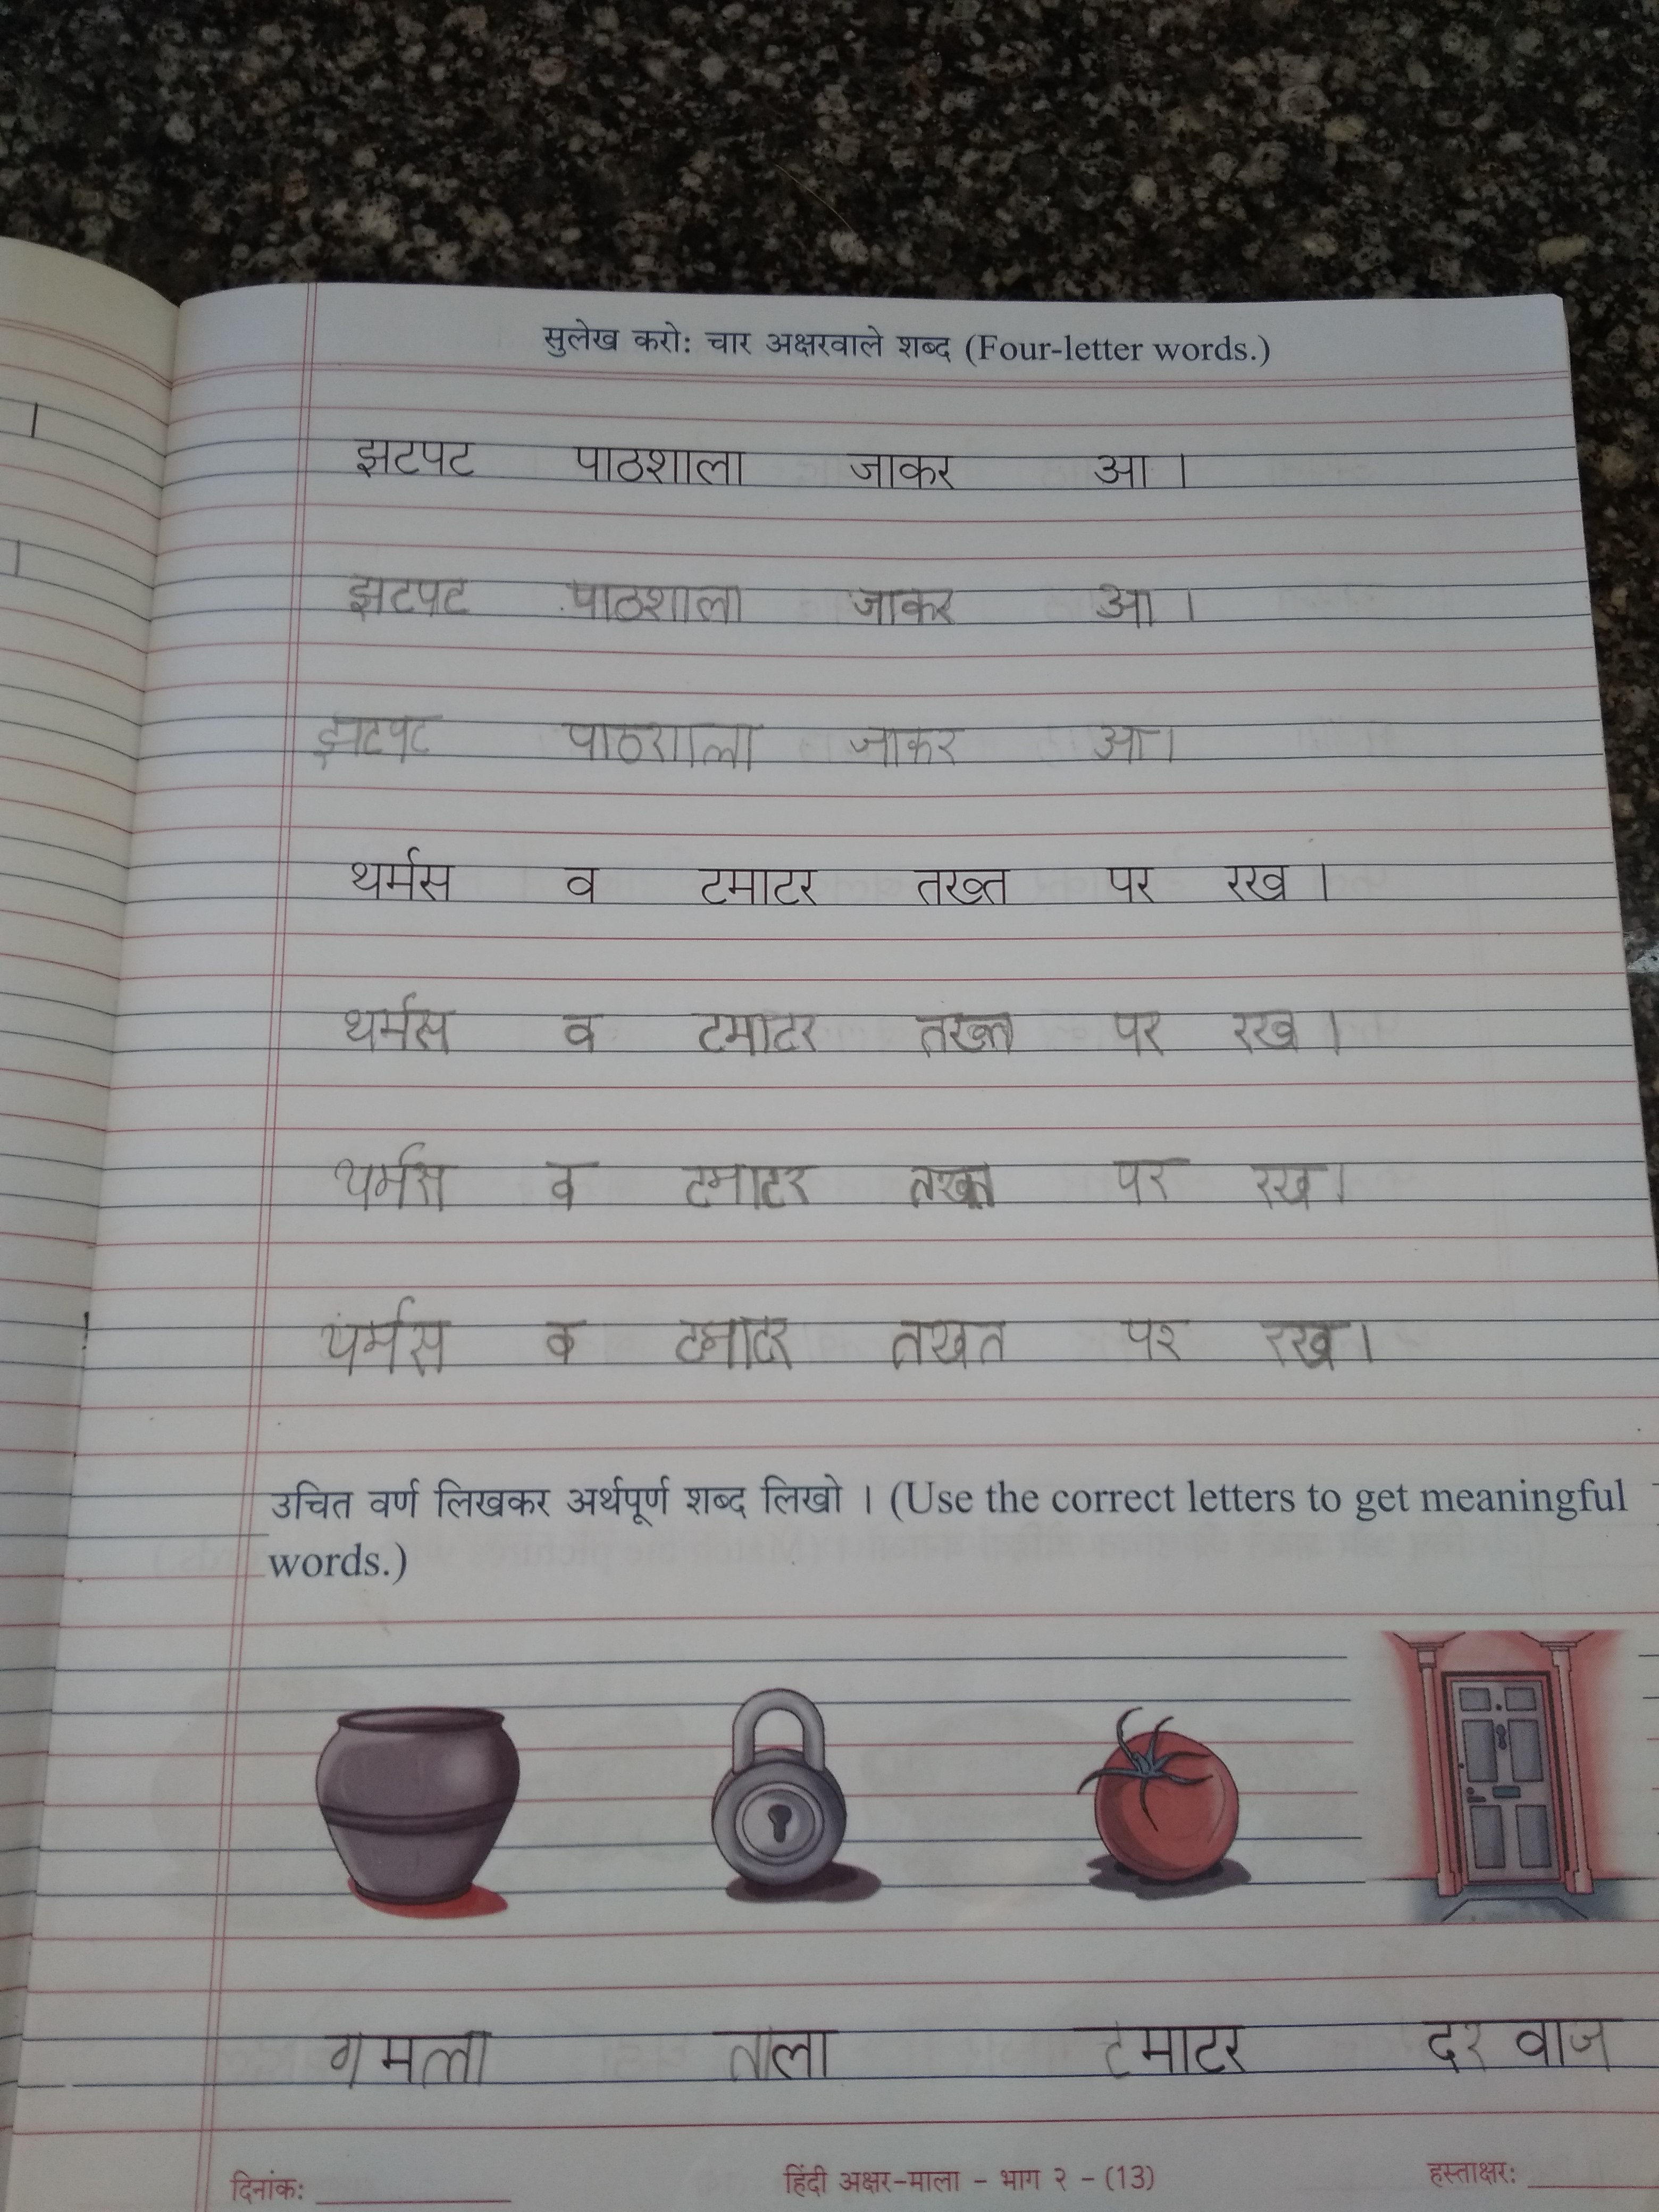 सुलेख करो: चार अक्षरवाले शब्द (Four-letter words.)
झटपट पाठशाला जाकर आ ।
झटपट पाठशाला जाकर आ ।
झटपट पाठशाला जाकर आ ।
थर्मस व टमाटर तख्त पर रख ।
थर्मस व टमाटर तख्त पर रख ।
थर्मस व टमाटर तख्त पर रख ।
थर्मस व टमाटर तखत पर रख ।
उचित वर्ण लिखकर अर्थपूर्ण शब्द लिखो । (Use the correct letters to get meaningful
words.)
गमला ताला टमाटर दरवाज
दिनांक: हिंदी अक्षर-माला - भाग २ - (13) हस्ताक्षर: